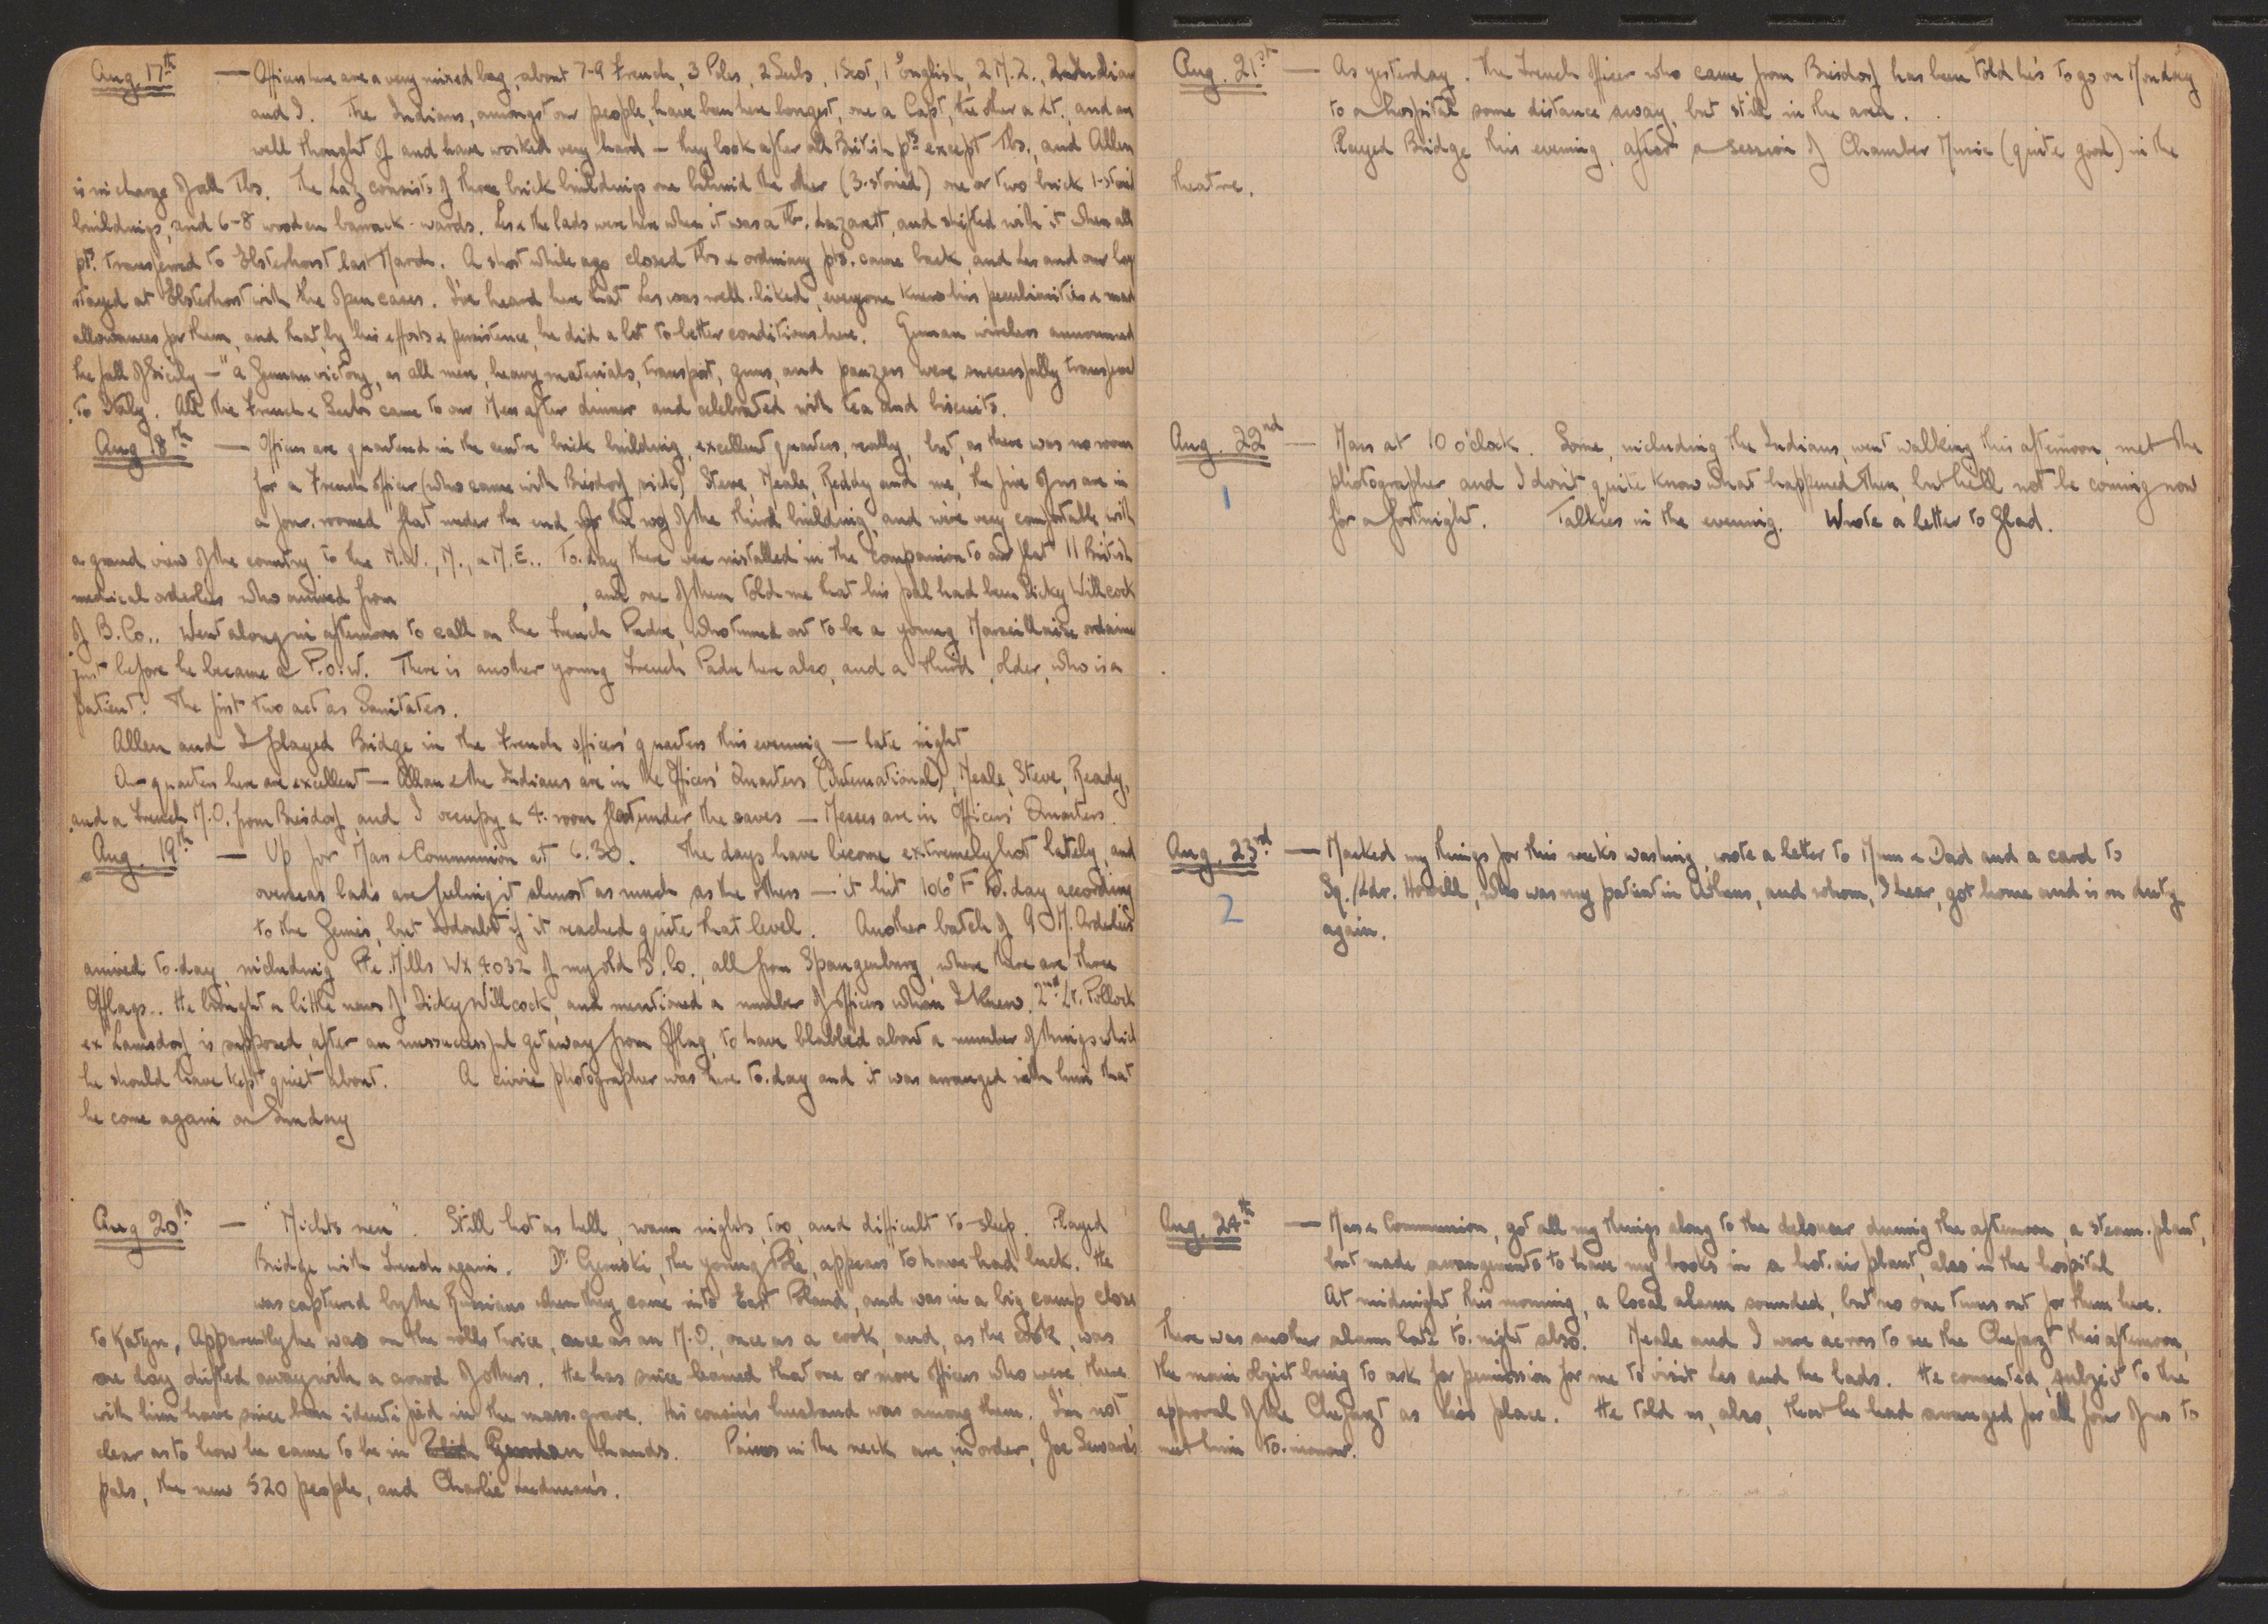 Aug 17th — Officers here are a very mixed bag, about 7-9 French, 3 Poles, 2 Serbs, 1 Scot, 1 English, 2 N.Z., 2 Indian
and I. The Indians, amongst our people, have been here longest, one a Capt, the other a Lt., and are
well thought of and have worked very hard – they look after all British pts except Tbs., and Allen
is in charge of all Tbs. The Laz consists of three brick buildings one behind the other (3-storied) one or two brick 1-storied
buildings, and 6-8 wooden barrack-wards. Les & the lads were here when it was a Tb. Lazarett, and shifted with it when all
pts. transferred to Elsterhorst last March. A short while ago closed Tbs & ordinary pts. came back, and Les and our
stayed at Elsterhorst with the open cases. I've heard here that Les was well-liked, everyone knew his peculiarities & made
allowances for them, and that, by his efforts & persistence, he did a lot to better conditions here. German wireless announced
the fall of Sicily – "a German victory, as all men, heavy materials, transport, guns, and panzers were successfully transferred
to Italy. All the French & Serbs came to our Mess after dinner and celebrated with tea and biscuits.
Aug 18th — Officers are quartered in the centre brick building, excellent quarters, really, but, as there was no room
for a French officer (who came with Breisdorf sick) Steve, Neale, Reddy and me, the five of us are in
a four-roomed flat under the end of the roof of the third building, and we're very comfortable, with
a grand view of the country to the N.W., N., & N.E.. To-day there were installed in the companion to our flat 11 British
medical orderlies who arrived from , and one of them told me that his pal had been Dicky Willcock
of B.Co.. Went along in afternoon to call on the French Padre, who turned out to be a young Marseillaise ordained
just before he became a P.O.W. There is another young French Padre here also, and a third, older, who is a
patient. The first two act as Sanitaters.
Allen and I played Bridge in the French officers' quarters this evening — late night
Our quarters here are excellent — Allan & the Indians are in the Officers' Quarters (International), Neale, Steve, Ready,
and a French M.O. from Breisdorf and I occupy a 4-room flat under the eaves — Messes are in Officers' Quarters.
Aug. 19th — Up for Mass & Communion at 6.30. The days have become extremely hot lately, and
overseas lads are feeling it almost as much as the others — it hit 106°F to-day according
to the Jerries, but I doubt if it reached quite that level. Another batch of 9 M. Orderlies
arrived to-day, including Pte. Mills WX 4032 of my old B.Co., all from Spangenburg, where there are three
Offlags.. He brought a little news of Dicky Willcock, and mentioned a number of officers whom I knew. 2nd Lt. Pollock
ex Lamsdorf is supposed, after an unsuccessful getaway from Offlag, to have blabbed about a number of things which
he should have kept quiet about. A civvie photographer was here to-day and it was arranged with him that
he come again on Sunday
Aug 20th — "Nichts neu". Still hot as hell, warm nights, too, and difficult to sleep. Played
Bridge with French again. Dr. the young Pole, appears to have had luck. He
was captured by the Russians when they came into East Poland, and was in a big camp close
to Katyn, Apparently he was on the rolls twice, once as an M.O., once as a cook, and, as the cook, was
one day shifted away with a crowd of others. He has since learned that one or more officers who were there
with him have since been identified in the mass-grave. His cousin's husband was among them. I'm not
clear as to how he came to be in German hands. Pains in the neck are, in order, Joe Seward's
pals, the new 520 people, and Charlie
Aug. 21st — As yesterday. The French officer who came from Breisdorf has been told he's to go on Monday
to a hospital some distance away, but still in the area.
Played Bridge this evening, after a session of Chamber Music (quite good) in the
theatre.
Aug. 22nd — Mass at 10 o'clock. Some, including the Indians, went walking this afternoon, met the
1 photographer, and I don't quite know what happened then, but he'll not be coming now
for a fortnight. Talkies in the evening. Wrote a letter to Glad.
Aug. 23rd — Marked my things for this week's washing, wrote a letter to Mum & Dad and a card to
2 Sq./Ldr. Howell, who was my patient in Athens, and whom, I hear, got home and is on duty
again.
Aug. 24th — Mass & Communion, got all my things along to the delouser during the afternoon, a steam-plant,
but made arrangements to have my books in a hot-air plant, also in the hospital
At midnight this morning, a local alarm sounded, but no one turns out for them here.
There was another alarm late to-night also. Neale and I were across to see the Chefarzt this afternoon,
the main object being to ask for permission for me to visit Les and the lads. He consented, subject to the
approval of the Chefarzt as Les's place. He told us, also, that he had arranged for all four of us to
meet him to-morrow.